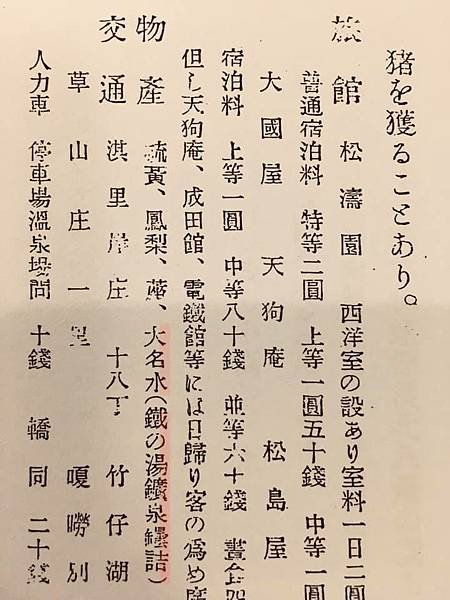 猪を獲ることあり。
旅館 松濤園 西洋室の設あり室料一日二圓
普通宿泊料 特等二圓 上等一圓五十錢 中等一圓
大國屋 天狗庵 松島屋
宿泊料 上等一圓 中等八十錢 並等六十錢 晝食四
但し天狗庵、成田館、電鐵館等には日歸り客の爲め席
物產 硫黃、鳳梨、茶、大名水(鐵の湯鑛泉罎詰)
交通 淇里岸庄 十八丁 竹仔湖
草山庄 一里 嗄嘮別
人力車 停車場溫泉塲間 十錢 轎 同 二十錢